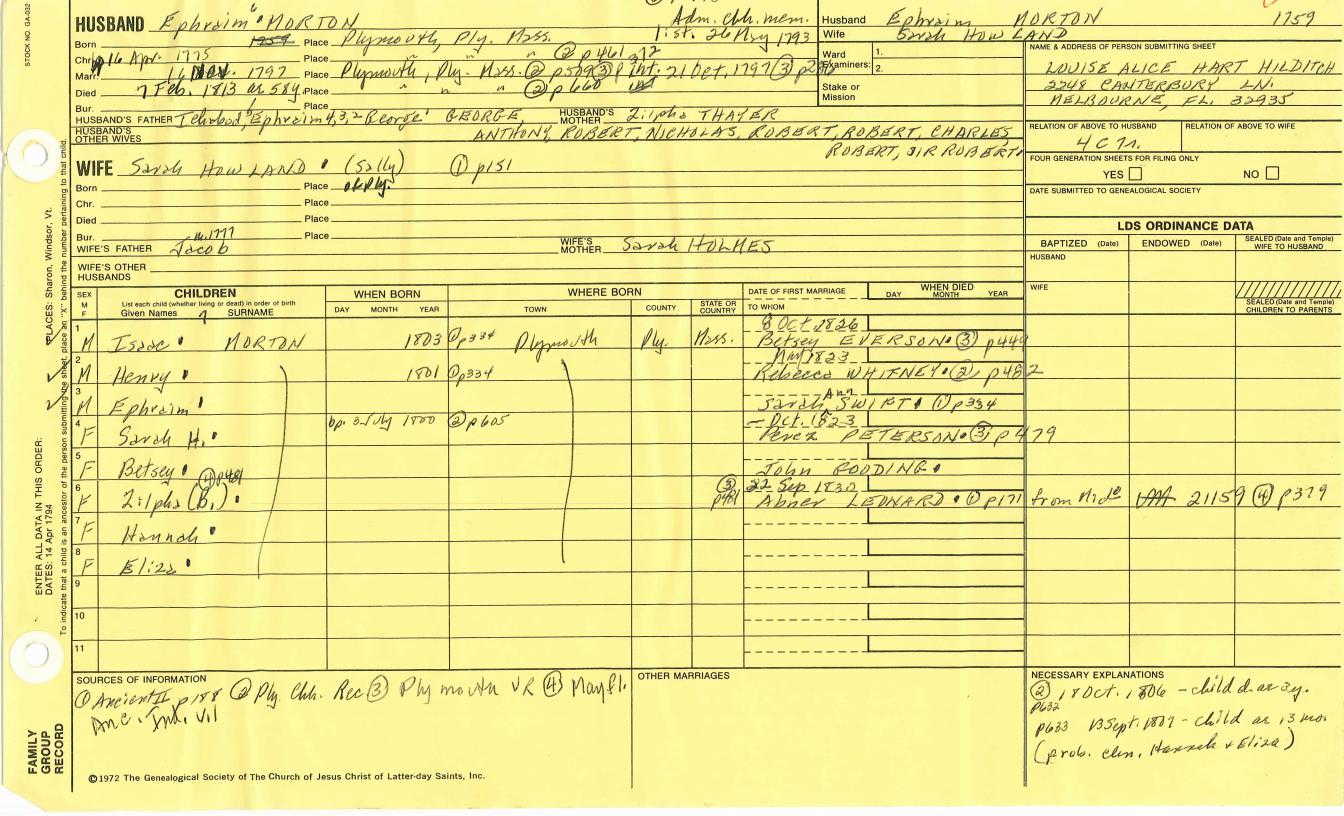 STOCK NO. GA-032
HUSBAND Ephraim MORTON Adm. chh. mem.
Born 1759 Place Plymouth, Ply. Mass. 1st. 26 May 1793
Chr. 16 Apr. 1775 Place " " " ② p461
Marr. 16 Nov. 1797 Place Plymouth, Ply. Mass. ② p509 ③ Int. 21 Oct, 1797 ③
Died 7 Feb. 1813 ae 58y. Place " " " ② p660
Bur. Place
HUSBAND'S FATHER Ichabod, Ephraim 4,3,2 George' GEORGE, HUSBAND'S MOTHER Zilpha THAYER
HUSBAND'S OTHER WIVES ANTHONY, ROBERT, NICHOLAS, ROBERT, ROBERT, CHARLES,
ROBERT, SIR ROBERT
WIFE Sarah HOWLAND (Sally) ① p151
Born Place of Ply.
Chr. Place
Died Place
Bur. Place
WIFE'S FATHER Jacob m.1777 WIFE'S MOTHER Sarah HOLMES
WIFE'S OTHER HUSBANDS
Husband Ephraim MORTON 1759
Wife Sarah HOWLAND
Ward Examiners: 1.
2.
Stake or Mission
NAME & ADDRESS OF PERSON SUBMITTING SHEET
LOUISE ALICE HART HILDITCH
2248 CANTERBURY LN.
MELBOURNE, FL. 32935
RELATION OF ABOVE TO HUSBAND RELATION OF ABOVE TO WIFE
4C7r.
FOUR GENERATION SHEETS FOR FILING ONLY
YES NO
DATE SUBMITTED TO GENEALOGICAL SOCIETY
LDS ORDINANCE DATA
BAPTIZED (Date) ENDOWED (Date) SEALED (Date and Temple) WIFE TO HUSBAND
HUSBAND
WIFE
SEALED (Date and Temple) CHILDREN TO PARENTS
SEX M F CHILDREN WHEN BORN WHERE BORN DATE OF FIRST MARRIAGE WHEN DIED
List each child (whether living or dead) in order of birth
Given Names SURNAME DAY MONTH YEAR TOWN COUNTY STATE OR COUNTRY TO WHOM DAY MONTH YEAR
8 Oct. 1826
1 M Isaac MORTON 1803 ① p334 Plymouth Ply. Mass. Betsey EVERSON ③ p449
1823
2 M Henry 1801 ① p334 Rebecca WHITNEY ② p482
3 M Ephraim Sarah Ann SWIFT ① p334
- Oct. 1823
4 F Sarah H. bp. 3 July 1800 ② p605 Perez PETERSON ③ p479
5 F Betsey John GOODING
④ p481 ③ 22 Sep. 1830
6 F Zilpha (B.) p481 Abner LEONARD ① p171 from Mide 21159 ④ p379
7 F Hannah
8 F Eliza
9
10
11
SOURCES OF INFORMATION
① Ancient II p188 ② Ply. Chh. Rec ③ Plymouth VR ④ Mayfl.
Anc. Ind. V.1
OTHER MARRIAGES
NECESSARY EXPLANATIONS
② 18 Oct. 1806 - child d. ae 3y.
p632
p633 13 Sept. 1807 - child ae 13 mo.
(prob. chn. Hannah & Eliza)
©1972 The Genealogical Society of The Church of Jesus Christ of Latter-day Saints, Inc.
FAMILY GROUP RECORD
ENTER ALL DATA IN THIS ORDER:
DATES: 14 Apr 1794
PLACES: Sharon, Windsor, Vt.
To indicate that a child is an ancestor of the person submitting the sheet, place an "X" behind the number pertaining to that child.